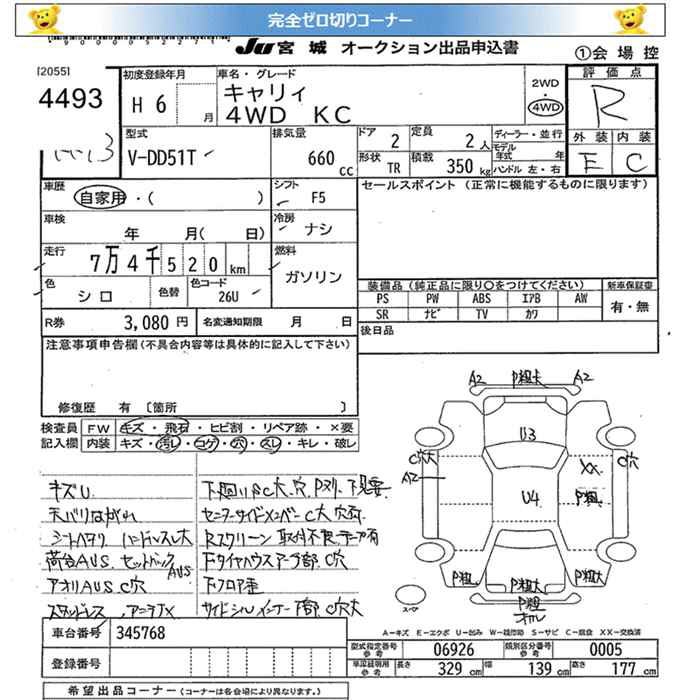 完全ゼロ切りコーナー
JU 宮 城 オークション出品申込書
①会 場 控
[2055]
4493
初度登録年月
H 6 月
車名・グレード
キャリィ
4WD KC
2WD
・
4WD
評 価 点
R
外 装 内 装
E C
型式
V-DD51T
排気量
660 cc
ドア 2
定員 2 人
形状 TR
積載 350 kg
ディーラー・並行
モデル年式 年
ハンドル 左・右
車歴
自家用・( )
シフト
F5
車検
年 月( 日)
冷房
ナシ
走行
7万4千520 km
燃料
ガソリン
色
シロ
色替
色コード
26U
R券 3,080 円
名変通知期限 月 日
セールスポイント (正常に機能するものに限ります)
装備品 (純正品に限り○をつけてください)
新車保証書
PS PW ABS エアB AW
SR ナビ TV カワ
有・無
後日品
注意事項申告欄 (不具合内容等は具体的に記入して下さい)
修復歴 有 〔箇所 〕
検査員 FW キズ・飛石・ヒビ割・リペア跡・×要
記入欄 内装 キズ・汚レ・コゲ・穴・スレ・キレ・破レ
キズU
天バリはがれ
シートヘタリ ハンドルスレ大
荷台AUS セットバックAUS
アオリAUS C穴
スタッドレス
下廻りPC大、穴、Pヌリ、下見要
センターサイドメンバーC大 穴有
Rスクリーン 取付不良 テープ有
FタイヤハウスアーチC部 C穴
Fフロア歪
サイドシルインナー下部 C穴大
A2 P粗大 A2
U3
C穴大
A2
XX
C穴
P粗
U4
P粗 P粗大 P粗大
P粗
スペア
A－キズ E－エクボ U－凹み W－補修跡 S－サビ C－腐食 XX－交換済
車台番号 345768
登録番号
型式指定番号 参考 06926
類別区分番号 参考 0005
車認証明用 参考 長さ 329 cm 幅 139 cm 高さ 177 cm
希望出品コーナー (コーナーは各会場により異なります。)